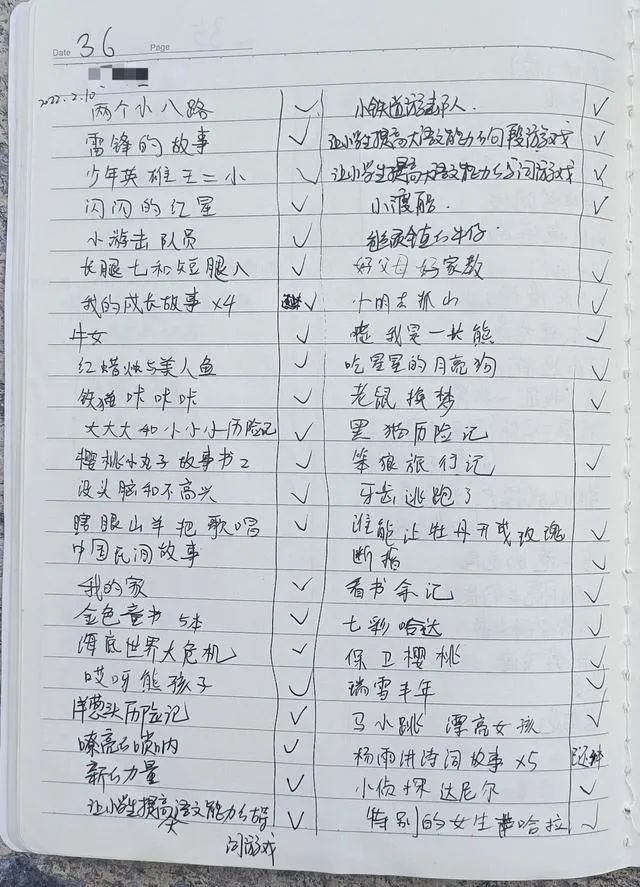 Date 36 Page
2022.2.10
两个小八路 ✓
雷锋的故事 ✓
少年英雄王二小 ✓
闪闪的红星 ✓
小游击队员 ✓
长腿七和短腿八 ✓
我的成长故事 ×4 ✓
牛女 ✓
红蜡烛与美人鱼 ✓
铁猫咔咔咔 ✓
大大大和小小小历险记 ✓
樱桃小丸子故事书2 ✓
没头脑和不高兴 ✓
瞎眼山羊把歌唱 ✓
中国民间故事
我的家 ✓
金色童书 5本 ✓
海底世界大危机 ✓
哎呀熊孩子 ✓
洋葱头历险记 ✓
嘹亮的唢呐 ✓
新的力量 ✓
让小学生提高大语文能力的
词游戏 ✓
小铁道游击队人 ✓
让小学生提高大语文能力的句段游戏 ✓
让小学生提高大语文能力的词游戏 ✓
小渡船 ✓
镇的牛仔
好父母好家教 ✓
小明去孤山 ✓
嘘 我是一长熊 ✓
吃星星的月亮狗 ✓
老鼠换梦 ✓
黑猫历险记
笨狼旅行记 ✓
牙齿逃跑了
谁能让牡丹开成玫瑰 ✓
断 ✓
看书余记 ✓
七彩哈达 ✓
保卫樱桃 ✓
瑞雪丰年 ✓
马小跳 漂亮女孩 ✓
杨雨讲诗词故事 ×5
小侦探达尼尔 ✓
特别的女生 哈拉 ✓